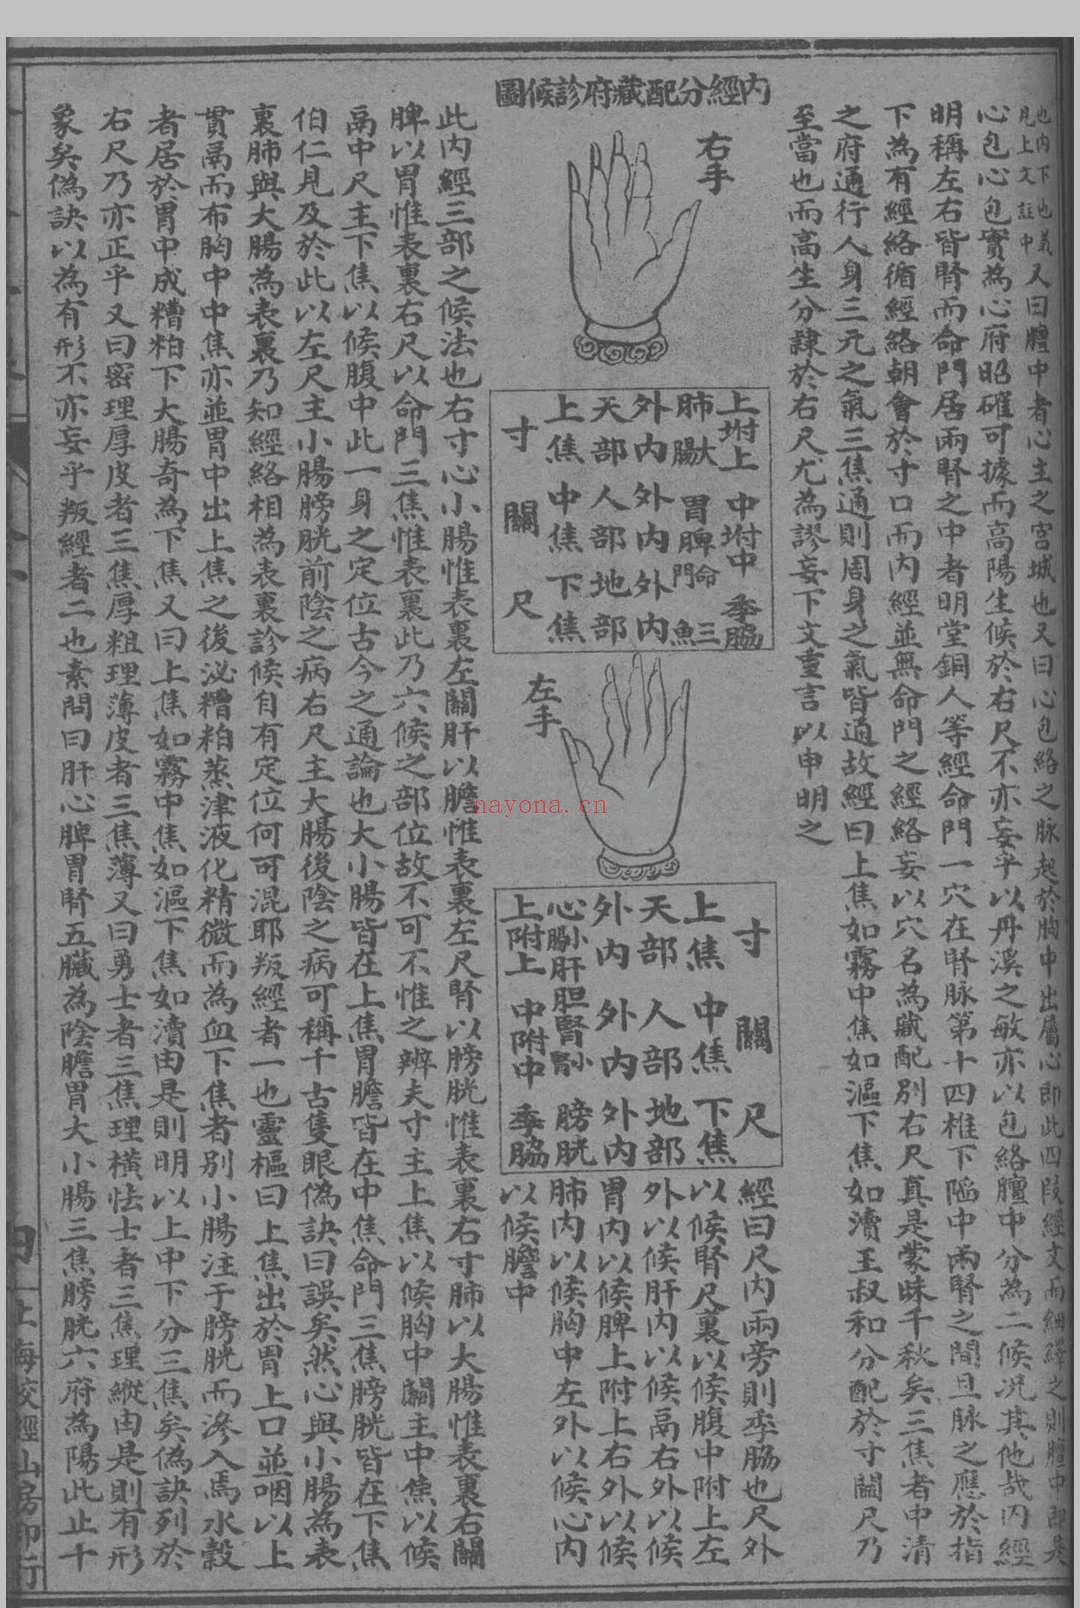 也內下也義
見上文註中
又曰膻中者心主之宮城也又曰心包絡之脉起於胸中出屬心即此四段經文而細繹之則膻中即是
心包心包實為心府昭確可據而高陽生候於右尺不亦妄乎以丹溪之敏亦以包絡膻中分為二候况其他哉內經
明稱左右皆腎而命門居兩腎之中者明堂銅人等經命門一穴在脊脉第十四椎下陷中兩腎之間且脉之應於指
下為有經絡循經絡朝會於寸口而內經並無命門之經絡妄以穴名為臟配別右尺真是蒙昧千秋矣三焦者中清
之府通行人身三元之氣三焦通則周身之氣皆通故經曰上焦如霧中焦如漚下焦如瀆王叔和分配於寸關尺乃
至當也而高生分隷於右尺尤為謬妄下文重言以申明之
內經分配藏府診候圖
右手
上坿上 中坿中 季脇
肺大腸 胃脾 命門 三
外內 外內 外內
天部 人部 地部
上焦 中焦 下焦
寸 關 尺
左手
寸 關 尺
上焦 中焦 下焦
天部 人部 地部
外內 外內 外內
心小腸 肝胆 腎小 膀胱
上附上 中附中 季脇
經曰尺內兩旁則季脇也尺外
以候腎尺裏以候腹中附上左
外以候肝內以候鬲右外以候
胃內以候脾上附上右外以候
肺內以候胸中左外以候心內
以候膻中
此內經三部之候法也右寸心小腸惟表裏左關肝以膽惟表裏左尺腎以膀胱惟表裏右寸肺以大腸惟表裏右關
脾以胃惟表裏右尺以命門三焦惟表裏此乃六候之部位故不可不惟之辨夫寸主上焦以候胸中關主中焦以候
鬲中尺主下焦以候腹中此一身之定位古今之通論也大小腸皆在上焦胃膽皆在中焦命門三焦膀胱皆在下焦
伯仁見及於此以左尺主小腸膀胱前陰之病右尺主大腸後陰之病可稱千古隻眼偽訣曰誤矣然心與小腸為表
裏肺與大腸為表裏乃知經絡相為表裏診候自有定位何可混耶叛經者一也靈樞曰上焦出於胃上口並咽以上
貫鬲而布胸中中焦亦並胃中出上焦之後泌糟粕蒸津液化精微而為血下焦者別小腸注于膀胱而滲入焉水穀
者居於胃中成糟粕下大腸奇為下焦又曰上焦如霧中焦如漚下焦如瀆由是則明以上中下分三焦矣偽訣列於
右尺乃亦正乎又曰密理厚皮者三焦厚粗理薄皮者三焦薄又曰勇士者三焦理橫怯士者三焦理縱由是則有形
象矣偽訣以為有形不亦妄乎叛經者二也素問曰肝心脾胃腎五臟為陰膽胃大小腸三焦膀胱六府為陽此止十
四
上海校經山房印行
nayona.cn